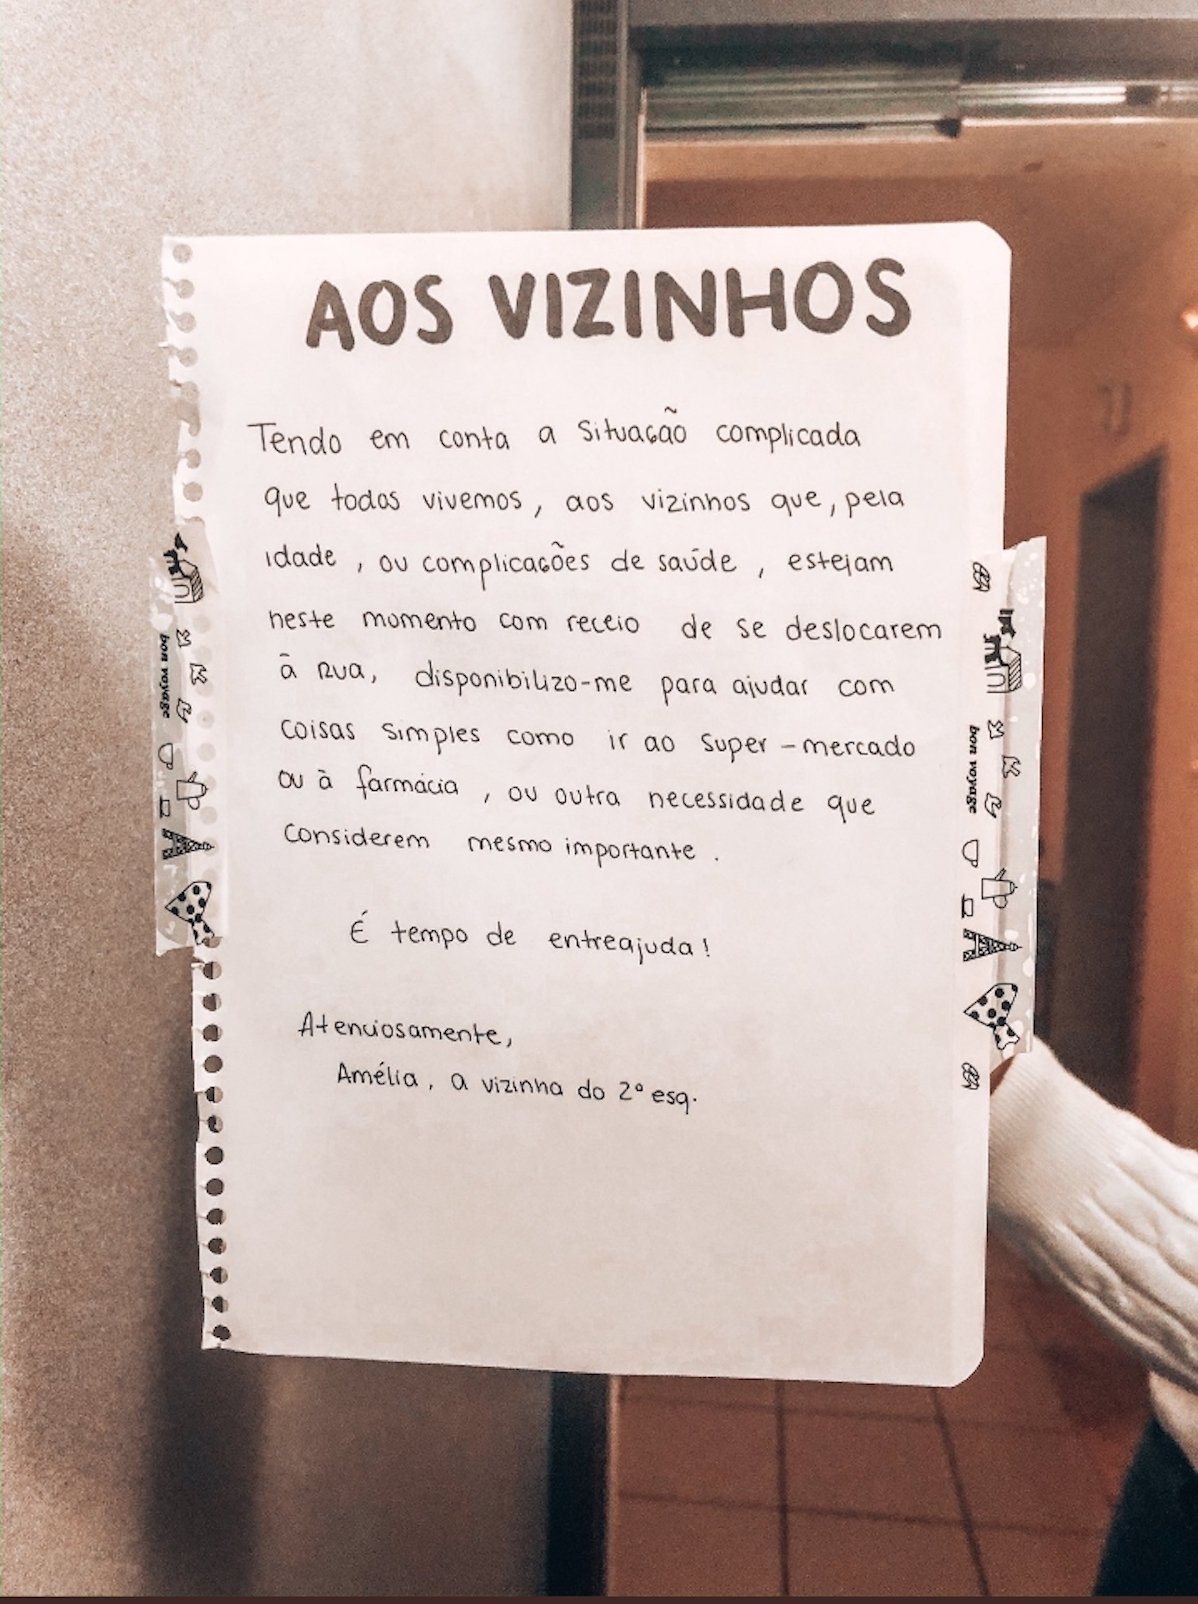 AOS VIZINHOS
Tendo em conta a situação complicada
que todos vivemos, aos vizinhos que, pela
idade, ou complicações de saúde, estejam
neste momento com receio de se deslocarem
à Rua, disponibilizo-me para ajudar com
coisas simples como ir ao super-mercado
ou à farmácia, ou outra necessidade que
considerem mesmo importante.
É tempo de entreajuda!
Atenciosamente,
Amélia, a vizinha do 2º esq.
bon voyage
bon voyage